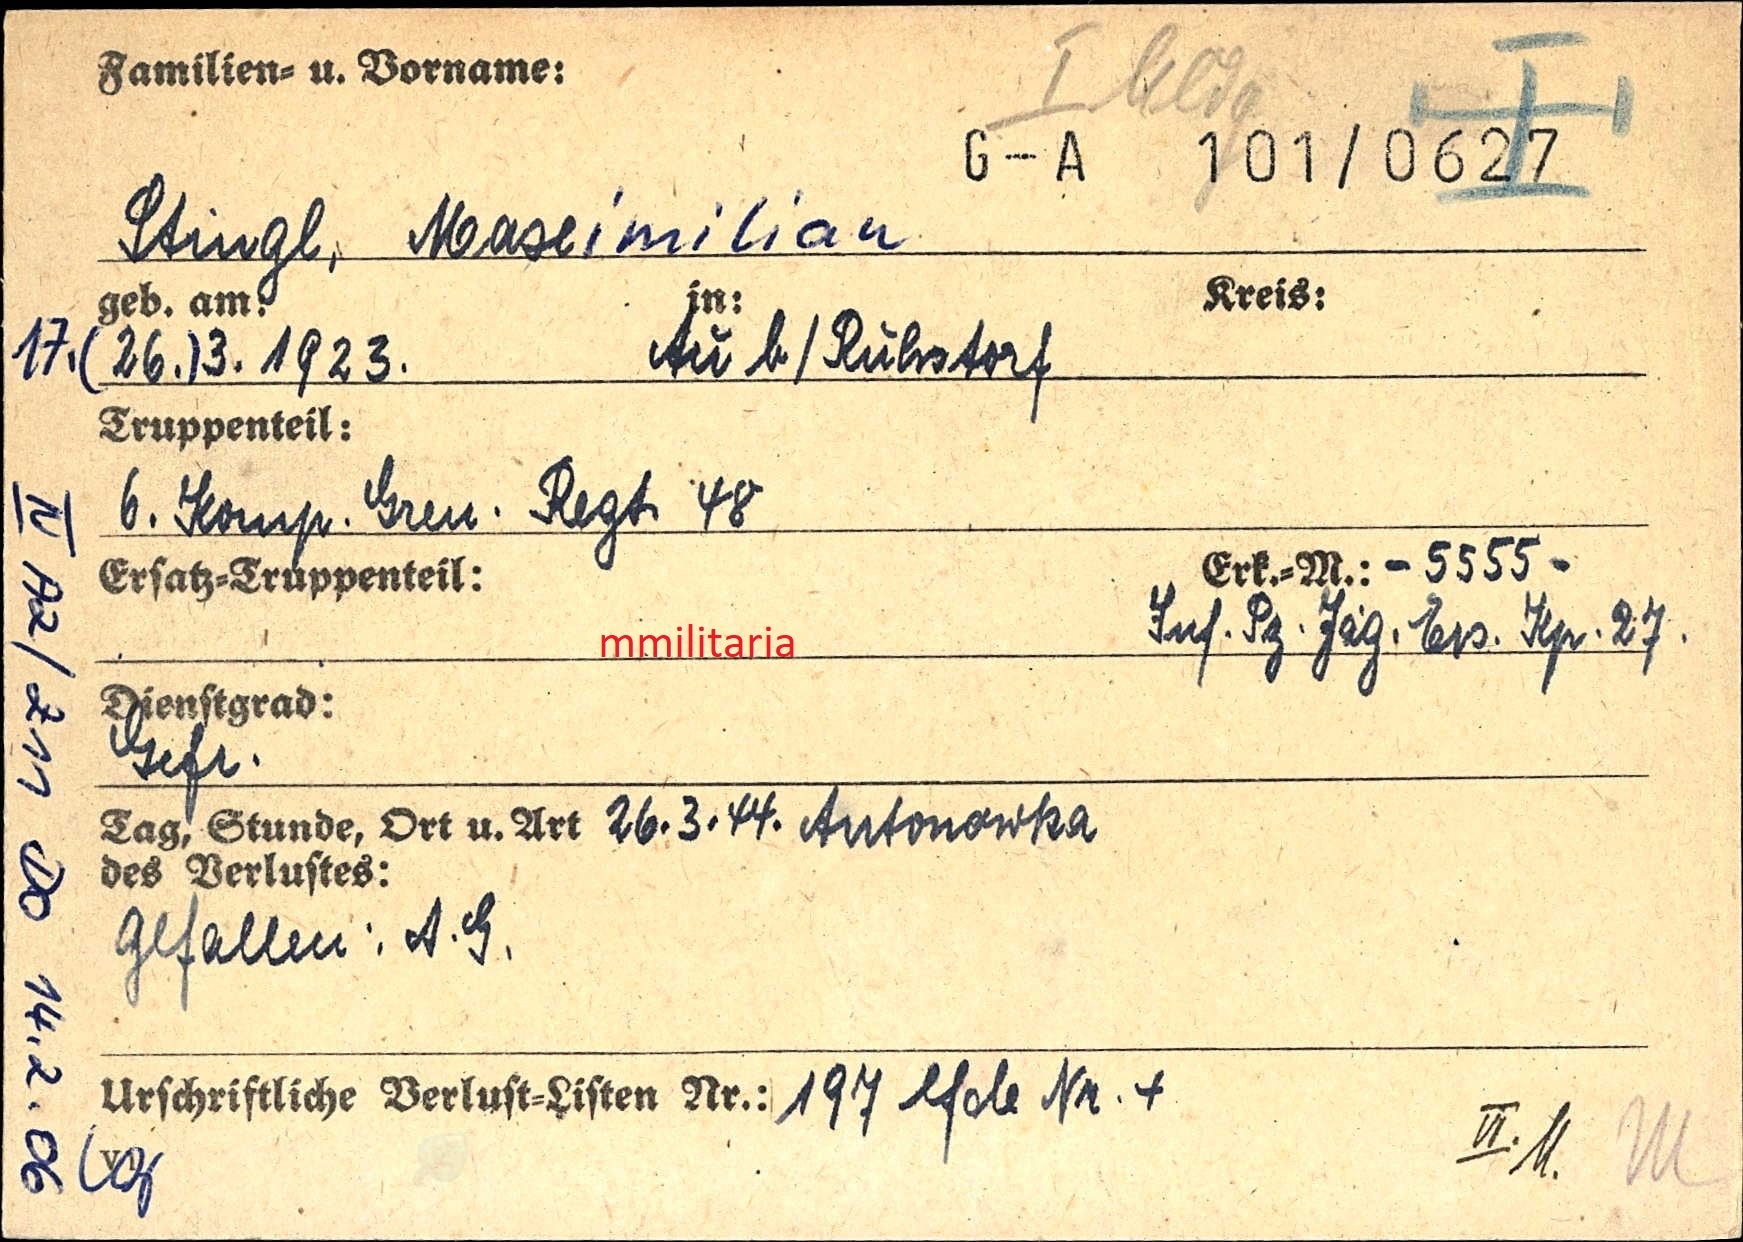 Familien= u. Vorname:
I Meldg
G--A 101/0627
Stingl, Maximilian
geb. am: in: Kreis:
17. (26.) 3. 1923. Au b/Ruhstorf
Truppenteil:
6. Komp. Gren. Regt. 48
Ersatz=Truppenteil: Erk.=M.: - 5555 -
Inf. Pz. Jäg. Ers. Kp. 27.
mmilitaria
Dienstgrad:
Gefr.
Tag, Stunde, Ort u. Art 26.3.44. Antonowka
des Verlustes:
gefallen: A.G.
Urschriftliche Verlust=Listen Nr.: 197 lfde Nr. +
VI. M.
M
IV A2/211 DO 14.2.06